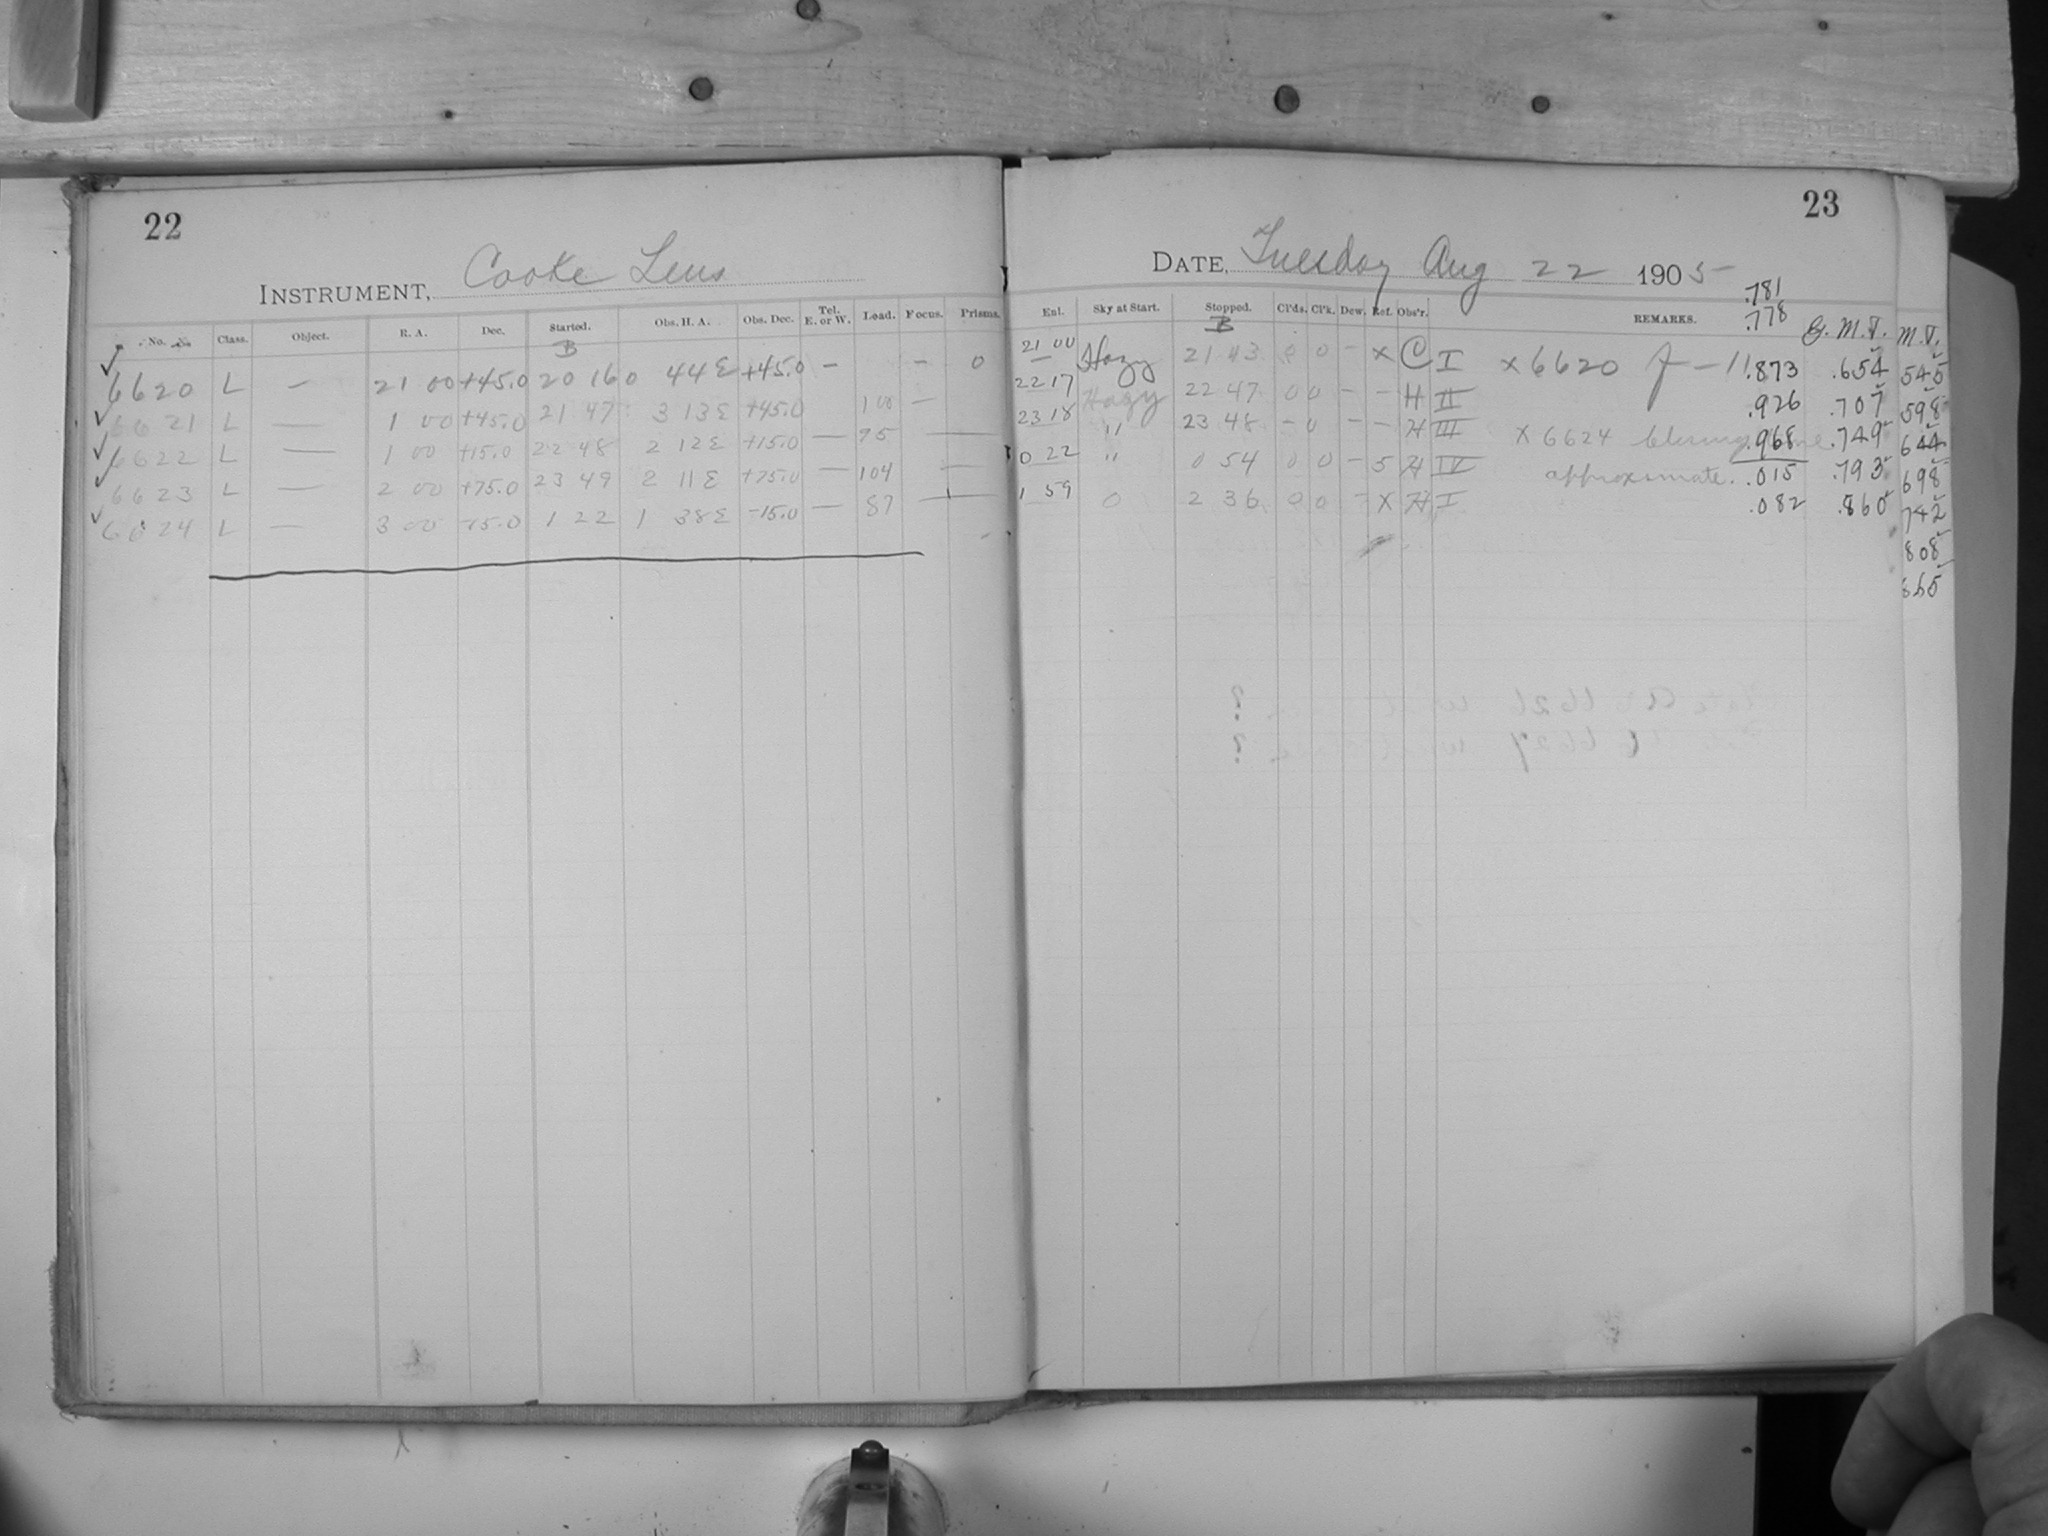 22
INSTRUMENT, Cooke Lens
No. Class. Object. R. A. Dec. Started. Obs. H. A. Obs. Dec. Tel. E. or W. Load. Focus. Prisms.
B
✓ 6620 L — 21 00 +45.0 20 16 0 44 E +45.0 — — 0
✓ 6621 L — 1 00 +45.0 21 47 3 13 E +45.0 100 —
✓ 6622 L — 1 00 +15.0 22 48 2 12 E +15.0 — 75 —
✓ 6623 L — 2 00 +75.0 23 49 2 11 E +75.0 — 104 —
✓ 6624 L — 3 00 -15.0 1 22 1 38 E -15.0 — 87 —
23
DATE, Tuesday Aug 22 1905
.781
.778
Enl. Sky at Start. Stopped. Cl'ds. Cl'k. Dew. Ref. Obs'r. REMARKS. G. M. T. M. T.
B
21 00 Hazy 21 43 0 0 – x C I x 6620 f – 11 .873 .654 545
22 17 Hazy 22 47 0 0 – – H II .926 .707 598
23 18 " 23 48 – 0 – – H III x 6624 .968 .749 644
0 22 " 0 54 0 0 – 5 H IV approximate. .015 .793 698
1 59 0 2 36 0 0 – x H I .082 .860 742
808